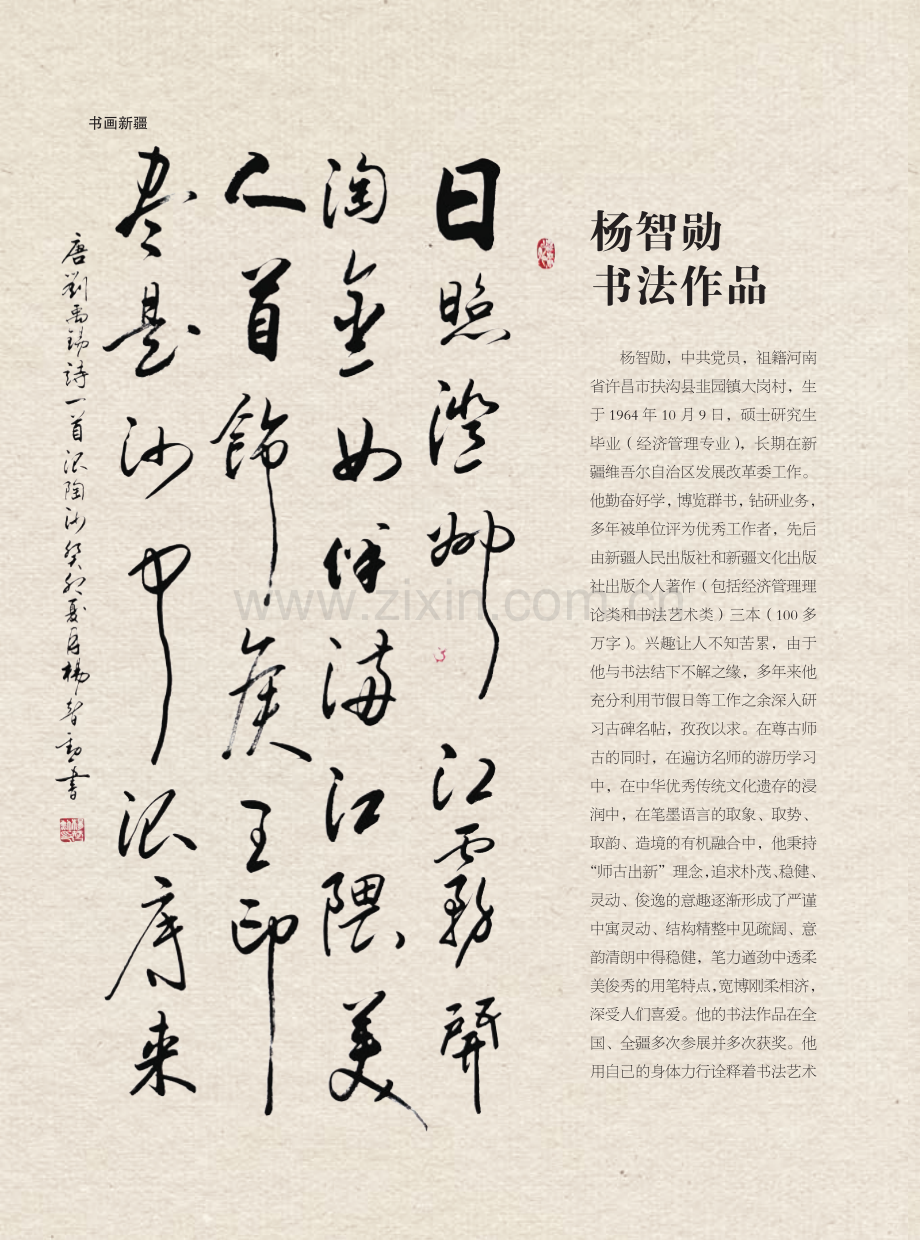 书画新疆
日照澄洲江霧開
淘金女伴满江隈美
人首飾侯王印
盡是沙中浪底来
唐劉禹錫詩一首浪陶沙癸卯夏月楊智勛書
杨智勋
书法作品
杨智勋，中共党员，祖籍河南
省许昌市扶沟县韭园镇大岗村，生
于 1964 年 10 月 9 日，硕士研究生
毕业（经济管理专业），长期在新
疆维吾尔自治区发展改革委工作。
他勤奋好学，博览群书，钻研业务，
多年被单位评为优秀工作者，先后
由新疆人民出版社和新疆文化出版
社出版个人著作（包括经济管理理
论类和书法艺术类）三本（100 多
万字）。兴趣让人不知苦累，由于
他与书法结下不解之缘，多年来他
充分利用节假日等工作之余深入研
习古碑名帖，孜孜以求。在尊古师
古的同时，在遍访名师的游历学习
中，在中华优秀传统文化遗存的浸
润中，在笔墨语言的取象、取势、
取韵、造境的有机融合中，他秉持
“师古出新”理念，追求朴茂、稳健、
灵动、俊逸的意趣逐渐形成了严谨
中寓灵动、结构精整中见疏阔、意
韵清朗中得稳健，笔力遒劲中透柔
美俊秀的用笔特点，宽博刚柔相济，
深受人们喜爱。他的书法作品在全
国、全疆多次参展并多次获奖。他
用自己的身体力行诠释着书法艺术
www.zixin.com.cn